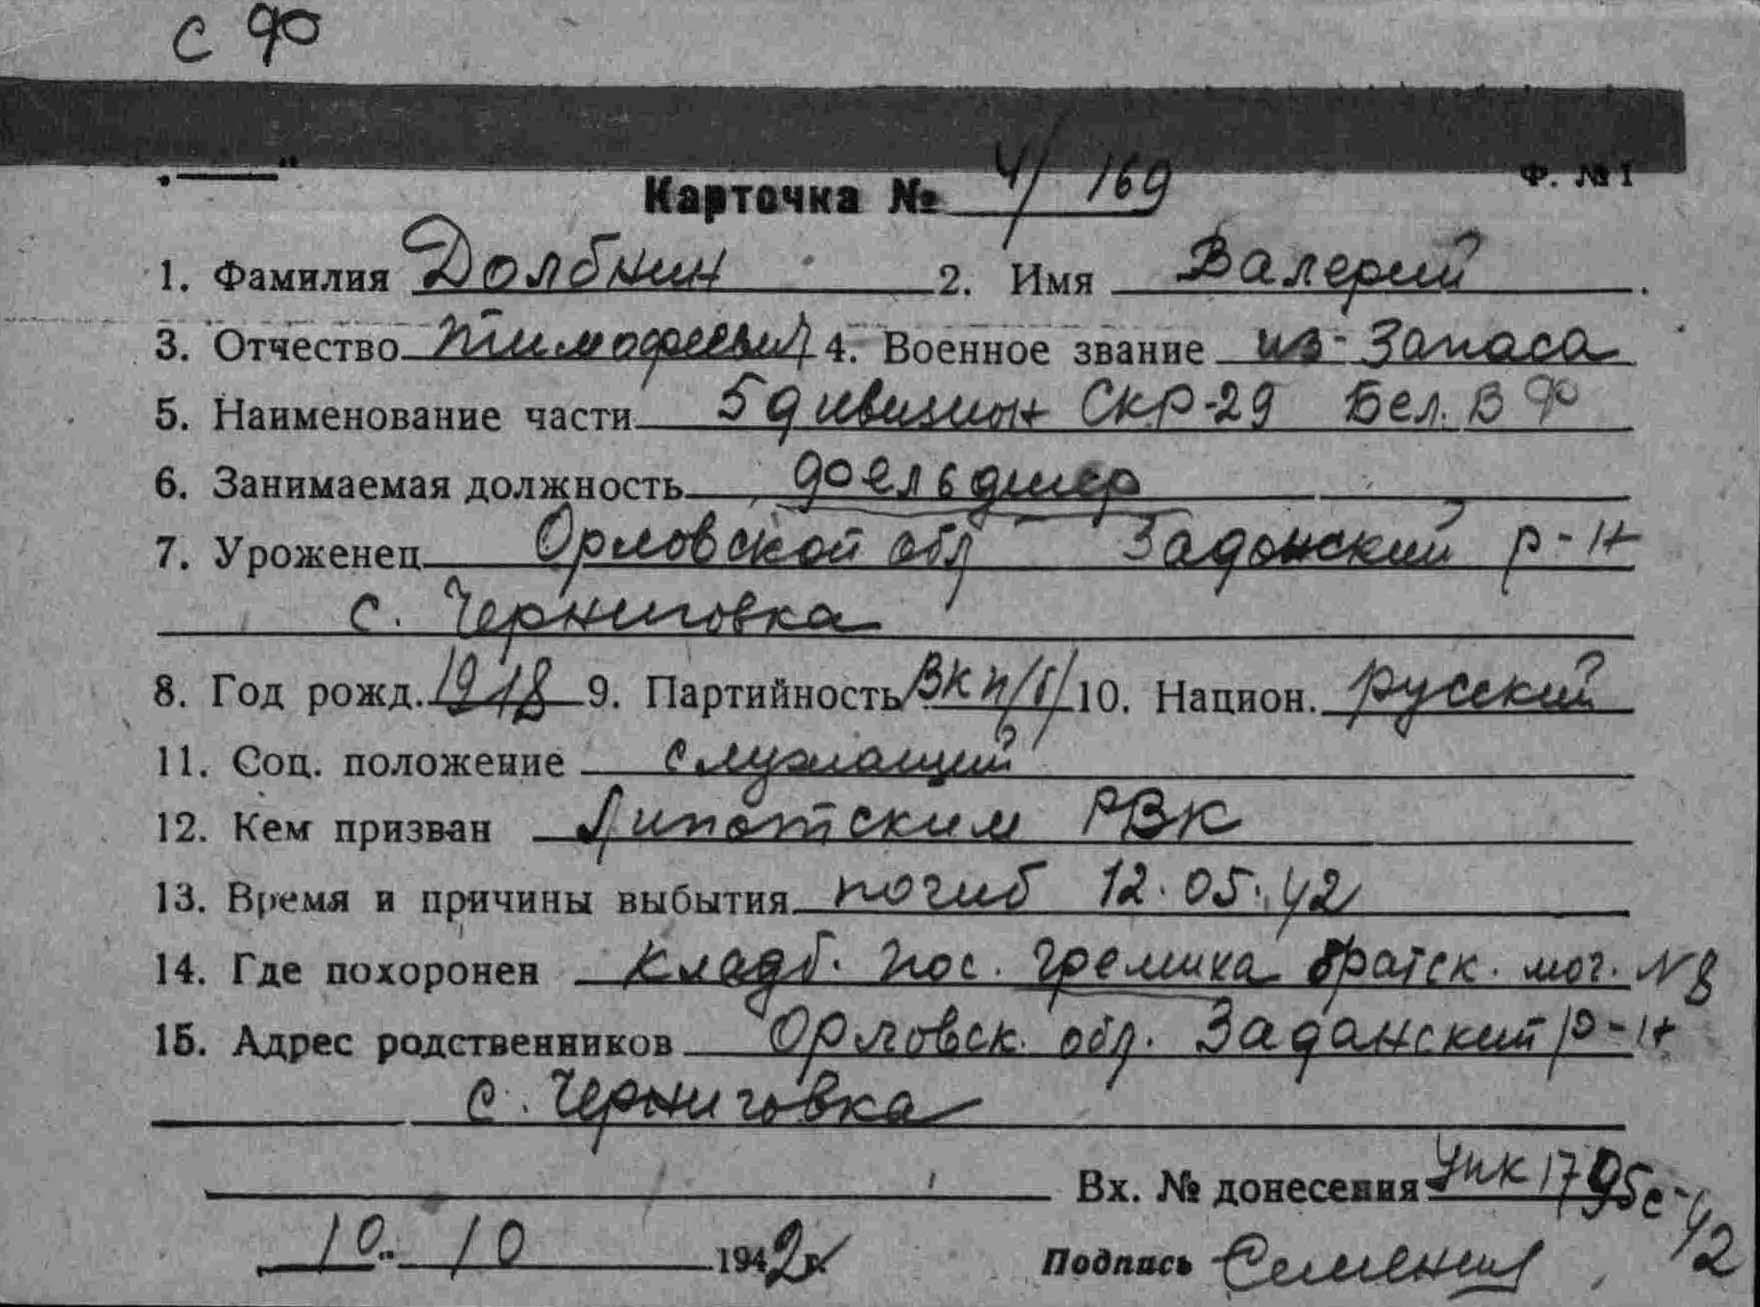 С Ф
Ф. № 1
Карточка № 4/169
1. Фамилия Долбнин 2. Имя Валерий.
3. Отчество Тимофеевич 4. Военное звание из запаса
5. Наименование части 5 дивизион СКР-29 Бел. В Ф
6. Занимаемая должность фельдшер
7. Уроженец Орловской обл Задонский р-н
с. Черниговка
8. Год рожд. 1918 9. Партийность ВКП/б/ 10. Национ. русский
11. Соц. положение служащий
12. Кем призван Липотским РВК
13. Время и причины выбытия погиб 12.05.42
14. Где похоронен кладб. пос. Гремиха братск. мог. N 8
15. Адрес родственников Орловск. обл. Заданский р-н
с. Черниговка
Вх. № донесения УПК 1795с-42
10. 10 1942 г.
Подпись